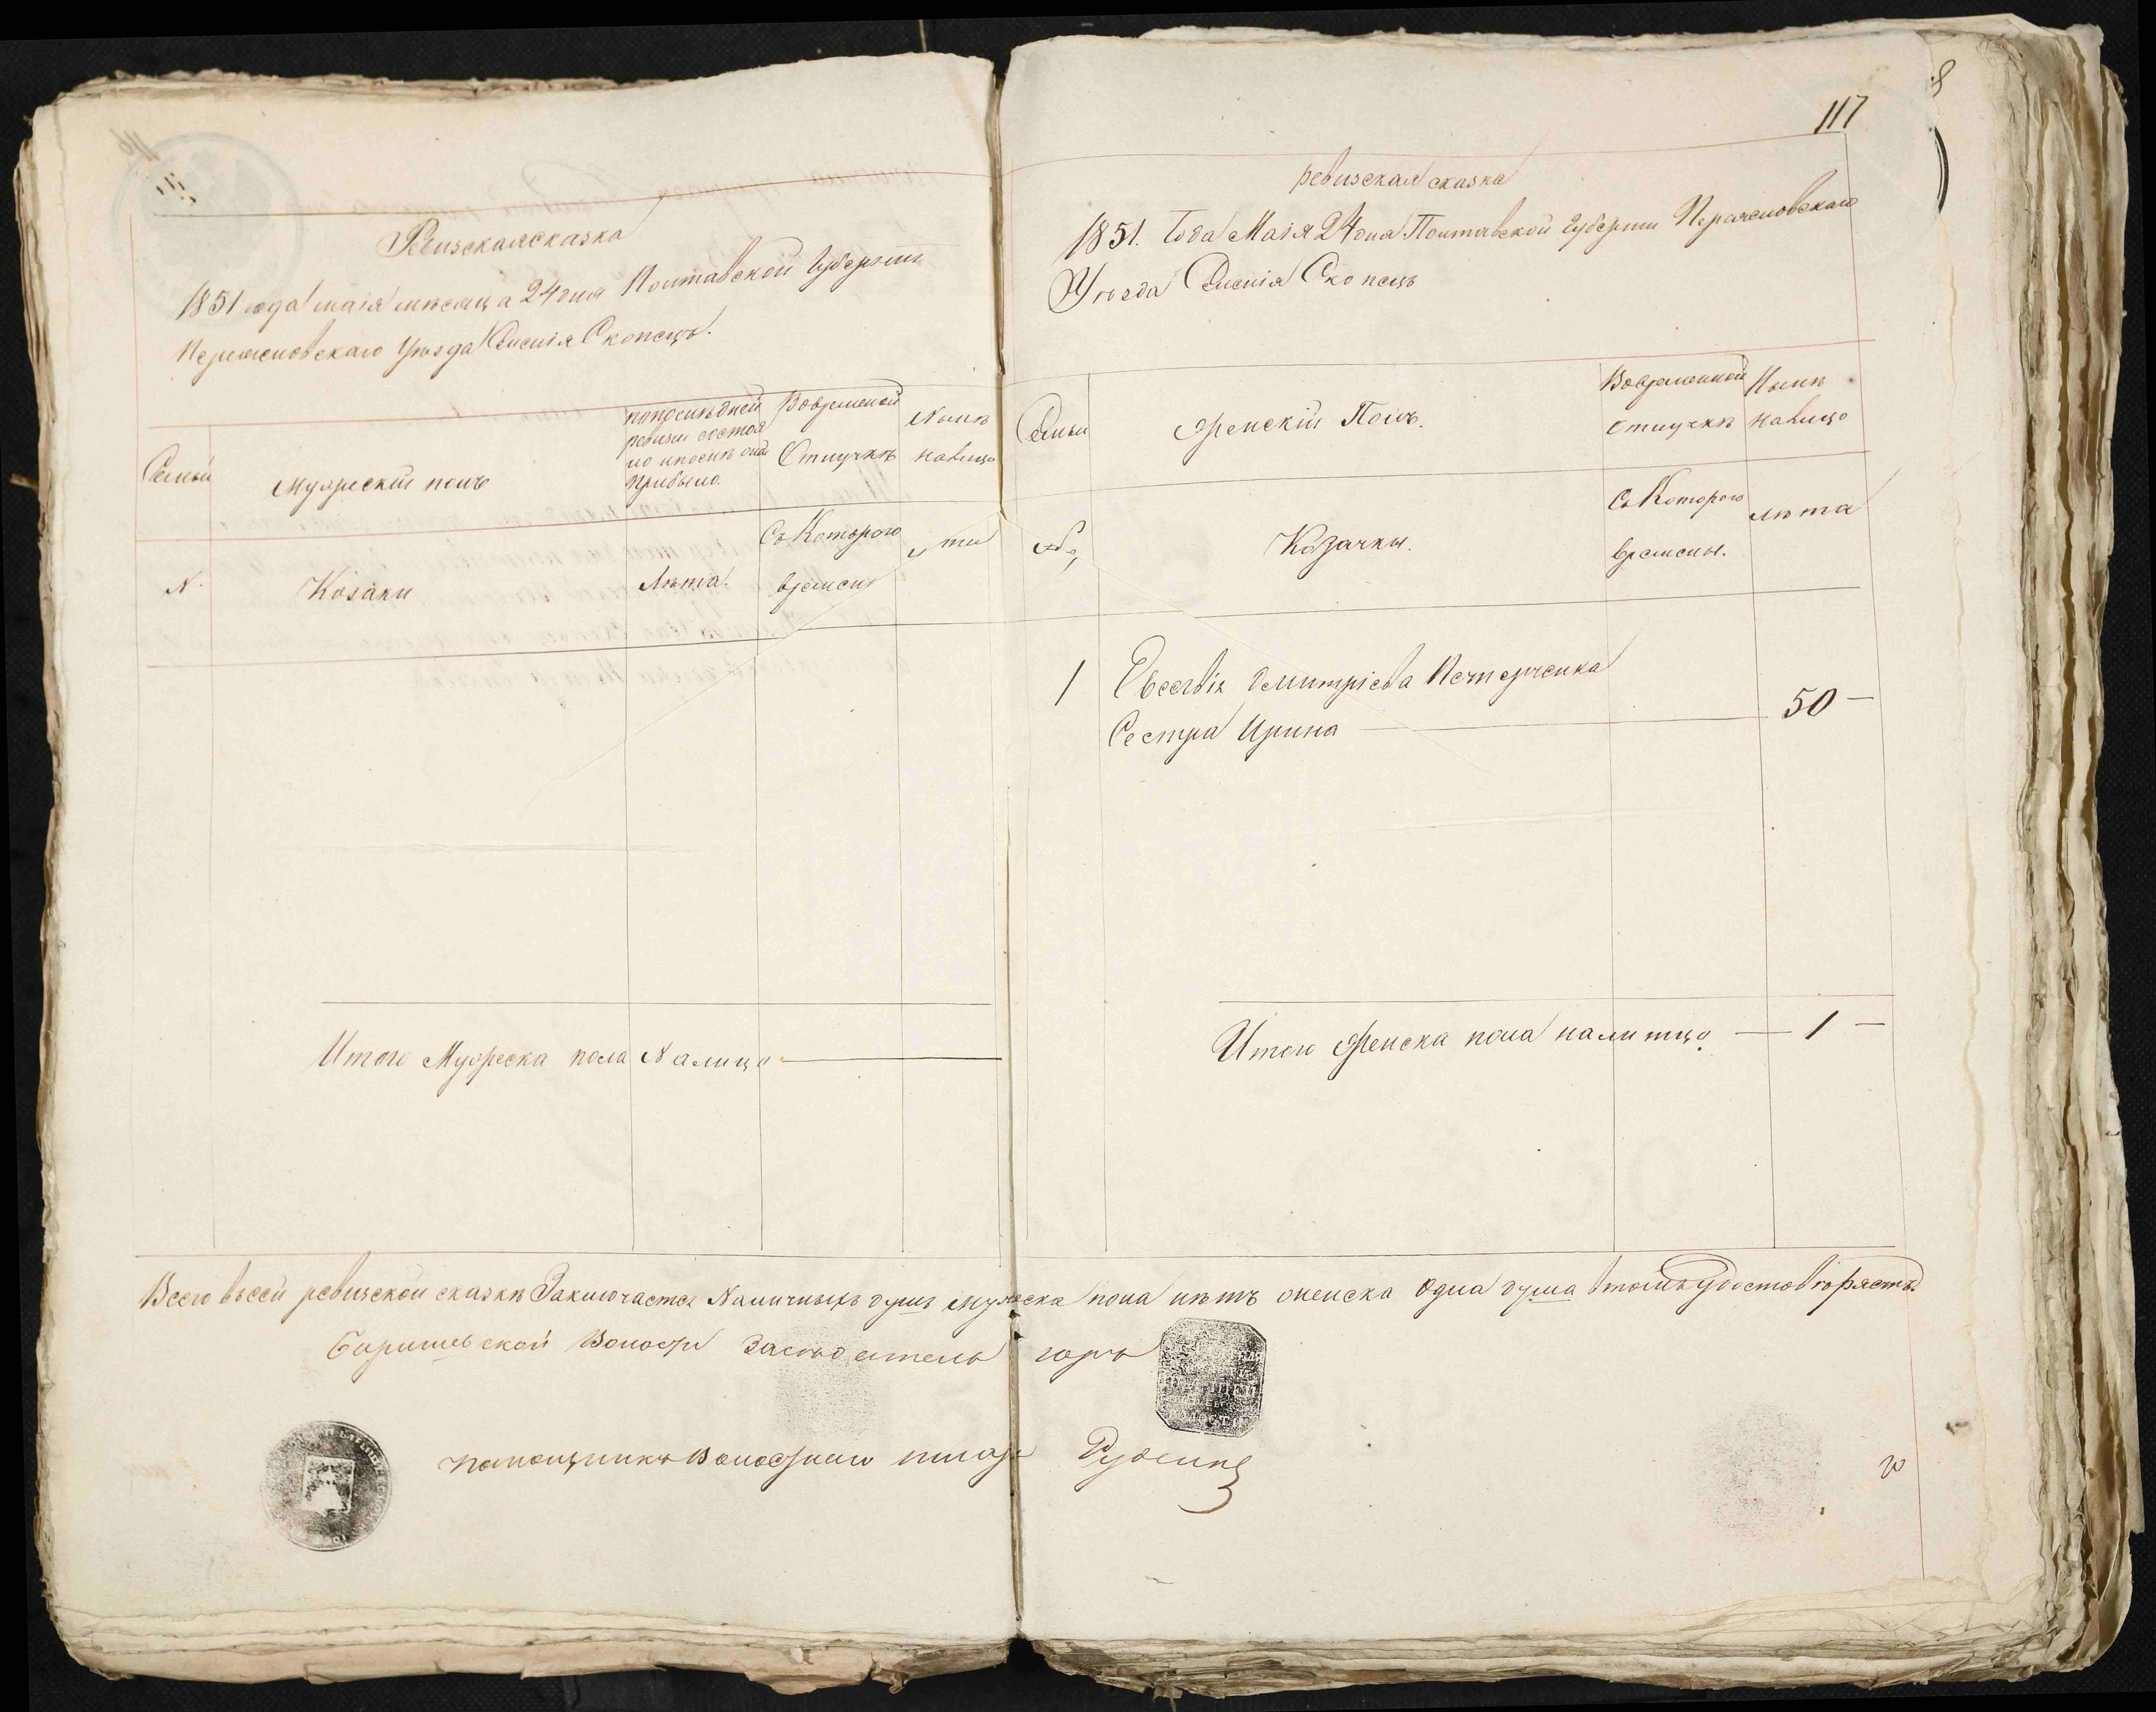 117
Ревизская сказка
1851 года маія месяца 24 дня Полтавской Губерніи
Переясловскаго Уезда Селенія Скопецъ.
Семьи
Мужескій полъ
попоследней ревизіи состояло ипосле оной прибыло.
Вовременой Отлучке
Ныне налицо
№
Козаки
Лета.
Съ Которого времени
лета
ревизская сказка
1851. Года Маія 24 дня Полтавской Губерніи Переясловскаго
Уезда Селенія Скопецъ
Семьи
Женскій Полъ.
Вовременной отлучке
Ныне налицо
Козачки.
Съ Которого времени.
лета
1 Евсевія Дмитріева Нечперченка
Сестра Ирина 50 —
Итого Мужеска пола Налицо —
Итого женска пола налитцо — 1 —
Всего всей ревизской сказке Заключается Наличныхъ душъ мужеска пола нетъ женска одна душа втомъ удостоверяетъ
Баришевской Волости Заседатель
помощникъ Волостнаго писаря